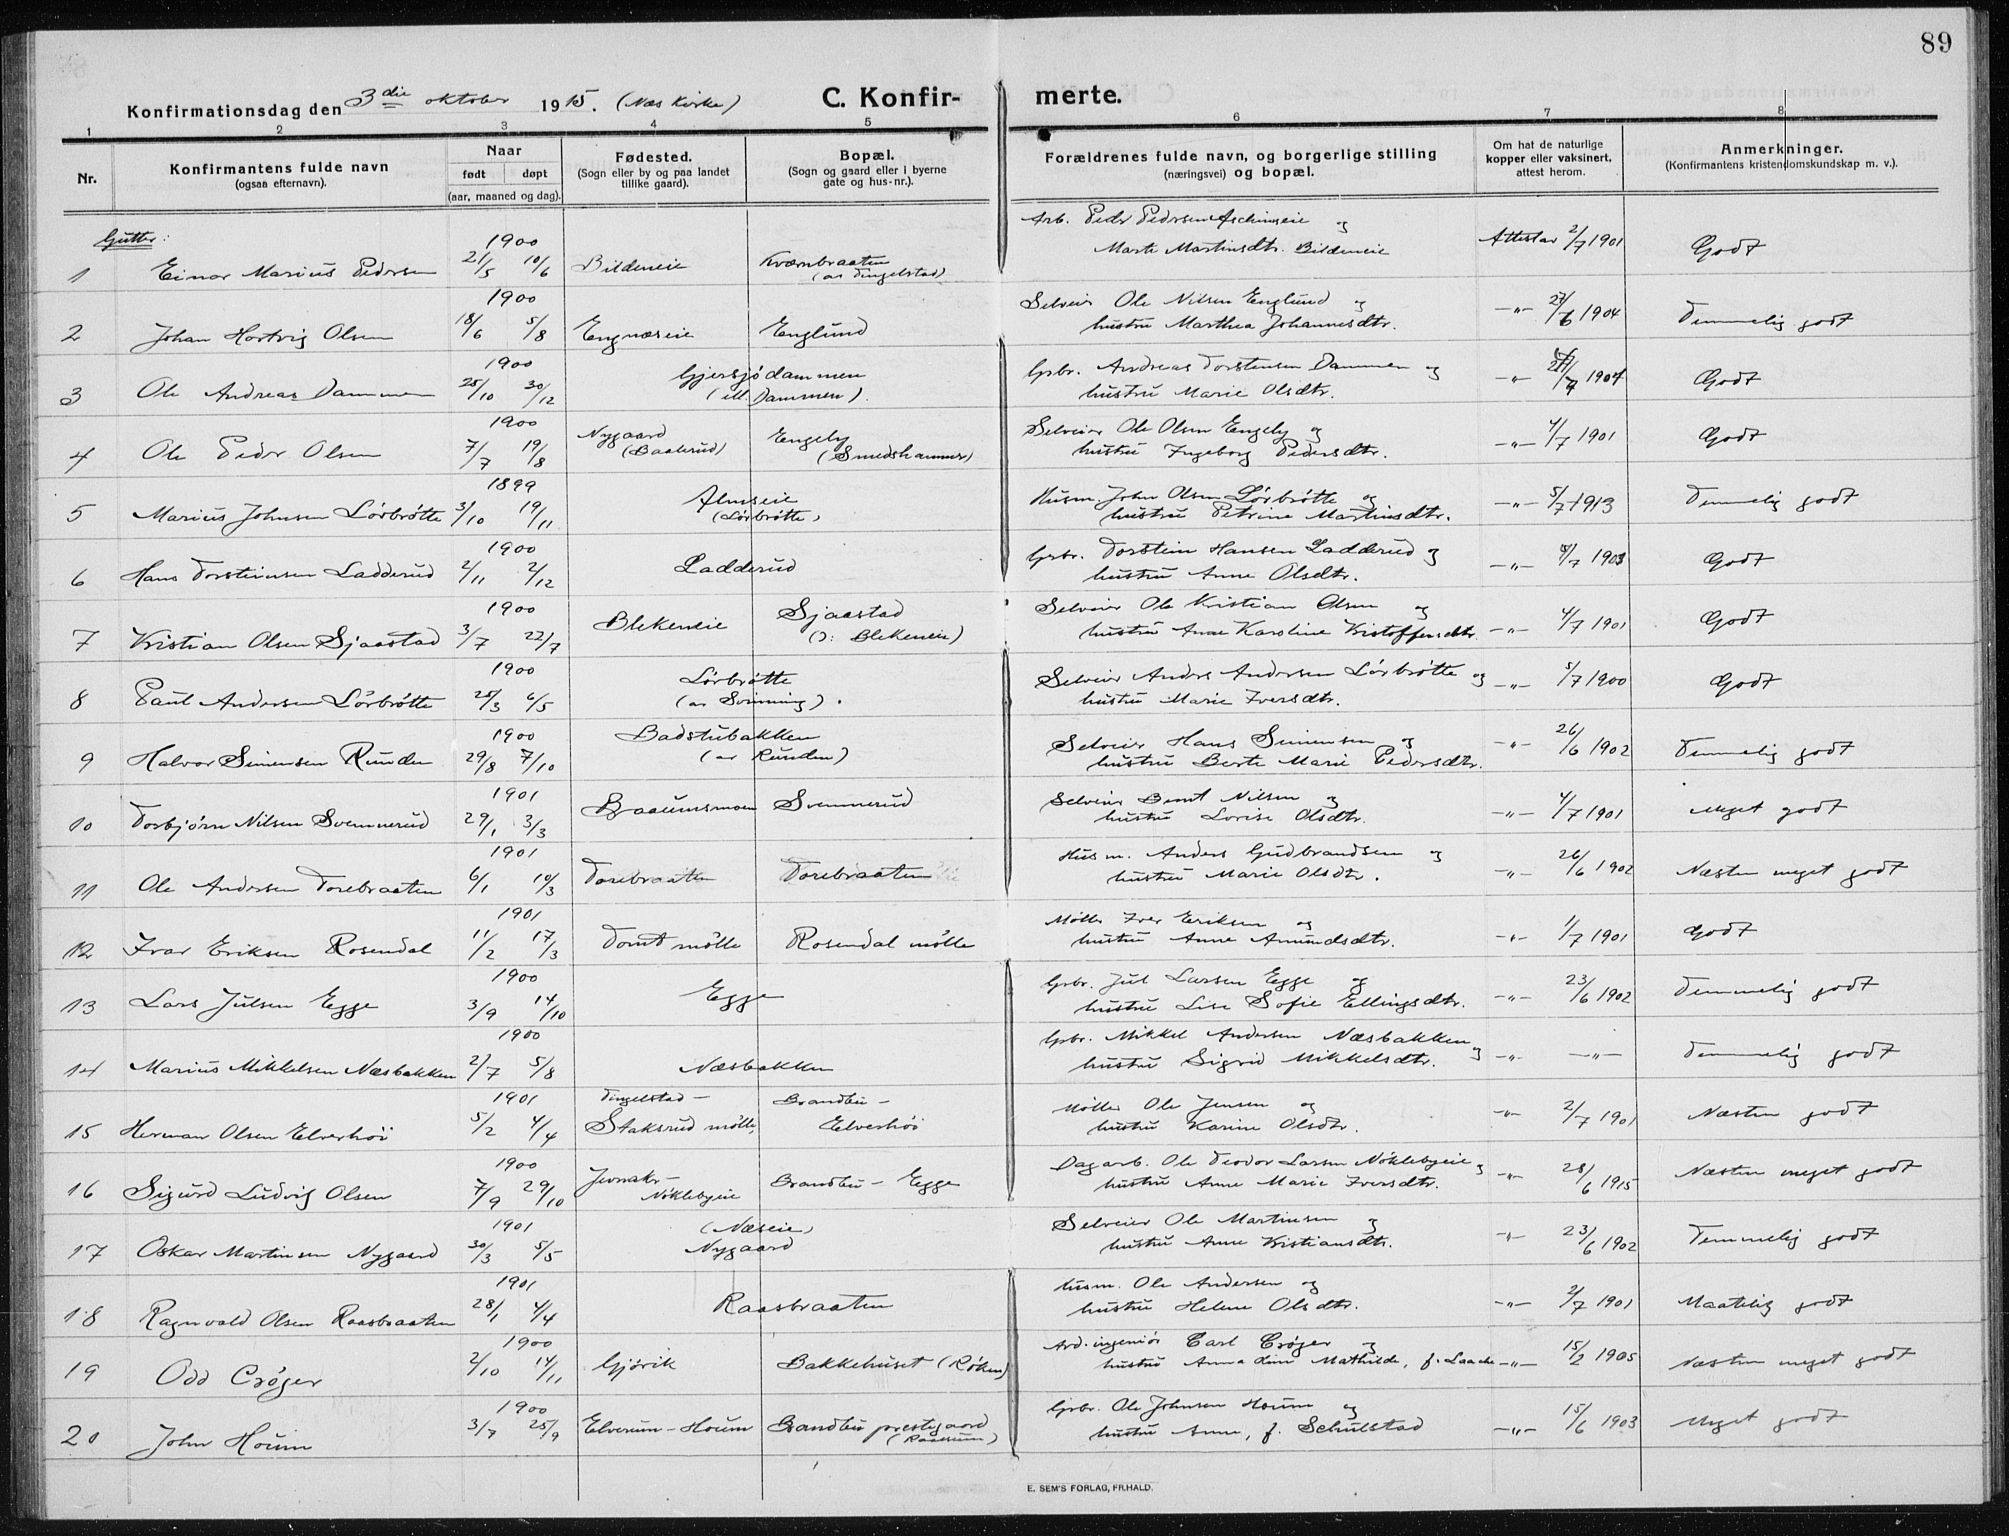 89
Konfirmationsdag den 3die oktober 1915. (Næs kirke) C. Konfirmerte.
1 2 3 4 5 6 7 8
Nr. Konfirmantens fulde navn (ogsaa efternavn). Naar født døpt (aar, maaned og dag). Fødested. (Sogn eller by og paa landet tillike gaard). Bopæl. (Sogn og gaard eller i byerne gate og hus-nr.). Forældrenes fulde navn, og borgerlige stilling (næringsvei) og bopæl. Om hat de naturlige kopper eller vaksinert, attest herom. Anmerkninger. (Konfirmantens kristendomskundskap m. v.).
Gutter:
1 Einar Marius Pedersen 1900 21/5 10/6 Bildeneie Kværnbraaten (av Tingelstad) Arb. Peder Pedersen Aschimseie og Marte Martinsdtr. Bildeneie Attester 2/7 1901 Godt
2 Johan Hartvig Olsen 1900 18/6 5/8 Engnæseie Englund Selveier Ole Nilsen Englund og hustru Marthea Johannesdtr. -"- 27/6 1904 Temmelig godt
3 Ole Andreas Dammen 1900 25/10 30/12 Gjersjødammen (ell. Dammen). Gbr. Andreas Torstensen Dammen og hustru Marie Olsdtr. -"- 1904 Godt
4 Ole Peder Olsen 1900 7/7 19/8 Nygaard (Baalerud) Engely (Smedshammer) Selveier Ole Olsen Engely og hustru Ingeborg Pedersdtr. -"- 4/7 1901 Godt
5 Marius Johnsen Lørbrøtte 1899 3/10 19/11 Almseie (Lørbrøtte) Husm. John Olsen Lørbrøtte og hustru Petrine Martinsdtr. -"- 5/7 1913 Temmelig godt
6 Hans Torsteinsen Ladderud 1900 2/11 2/12 Ladderud Gbr. Torstein Hansen Ladderud og hustru Anne Olsdtr. -"- /7 1903 Godt
7 Kristian Olsen Sjaastad 1900 3/7 22/7 Blekeneie Sjaastad (ɔ: Blekeneie) Selveier Ole Kristian Olsen og hustru Anne Karoline Kristoffersdtr. -"- 4/7 1901 Godt
8 Paul Andersen Lørbrøtte 1900 25/3 6/5 Lørbrøtte (av Sørinning). Selveier Anders Andersen Lørbrøtte og hustru Marie Iversdtr. -"- 5/7 1900 Godt
9 Halvor Simensen Runden 1900 29/8 7/10 Badstubakken (av Runden) Selveier Hans Simensen og hustru Berte Marie Pedersdtr. -"- 26/6 1902 Temmelig godt
10 Torbjørn Nilsen Svennerud 1901 29/1 3/3 Braaumsmoen Svennerud Selveier Bernt Nilsen og hustru Lovise Olsdtr. -"- 4/7 1901 Meget godt
11 Ole Andersen Torebraaten 1901 6/1 10/3 Torebraaten Torebraaten Husm. Anders Gudbrandsen og hustru Marie Olsdtr. -"- 26/6 1902 Næsten meget godt
12 Ivar Eriksen Rosendal 1901 11/2 17/3 Tomt mølle Rosendal mølle Møller Iver Eriksen og hustru Anne Amundsdtr. -"- 1/7 1901 Godt
13 Lars Julsen Egge 1900 3/9 14/10 Egge Gbr. Jul Larsen Egge og hustru Lise Sofie Ellingsdtr. -"- 23/6 1902 Temmelig godt
14 Marius Mikkelsen Næsbakken 1900 2/7 5/8 Næsbakken Gbr. Mikkel Andersen Næsbakken og hustru Sigrid Mikkelsdtr. -"- -"- Temmelig godt
15 Herman Olsen Elverhøi 1901 5/2 4/4 Tingelstad - Staksrud mølle Brandbu - Elverhøi Møller Ole Jensen og hustru Karine Olsdtr. -"- 2/7 1901 Næsten godt
16 Sigurd Ludvig Olsen 1900 7/9 29/10 Jevnakr - Niklebyeie Brandbu - Egge Dagarb. Ole Teodor Larsen Nøklebyeie og hustru Anne Marie Iversdtr. -"- 28/6 1915 Næsten meget godt
17 Oskar Martinsen Nygaard 1901 30/3 5/5 (Næseie) Nygaard Selveier Ole Martinsen og hustru Anne Kristiansdtr. -"- 23/6 1902 Temmelig godt
18 Ragnvald Olsen Raasbraaten 1901 28/1 4/4 Raasbraaten Husm. Ole Andersen og hustru Helene Olsdtr. -"- 2/7 1901 Maatelig godt
19 Odd Crøger 1900 2/10 14/11 Gjøvik Bakkehuset (Røken) Avd. ingeniør Carl Crøger og hustru Anna Mathilde, f. Laache -"- 15/2 1905 Næsten meget godt
20 John Houm 1900 3/7 25/9 Elverum - Houm Brandbu prestegaard Gbr. Ole Johnsen Houm og hustru Anne, f. Schulstad -"- 15/6 1903 Meget godt
E. SEM'S FORLAG, FR.HALD.